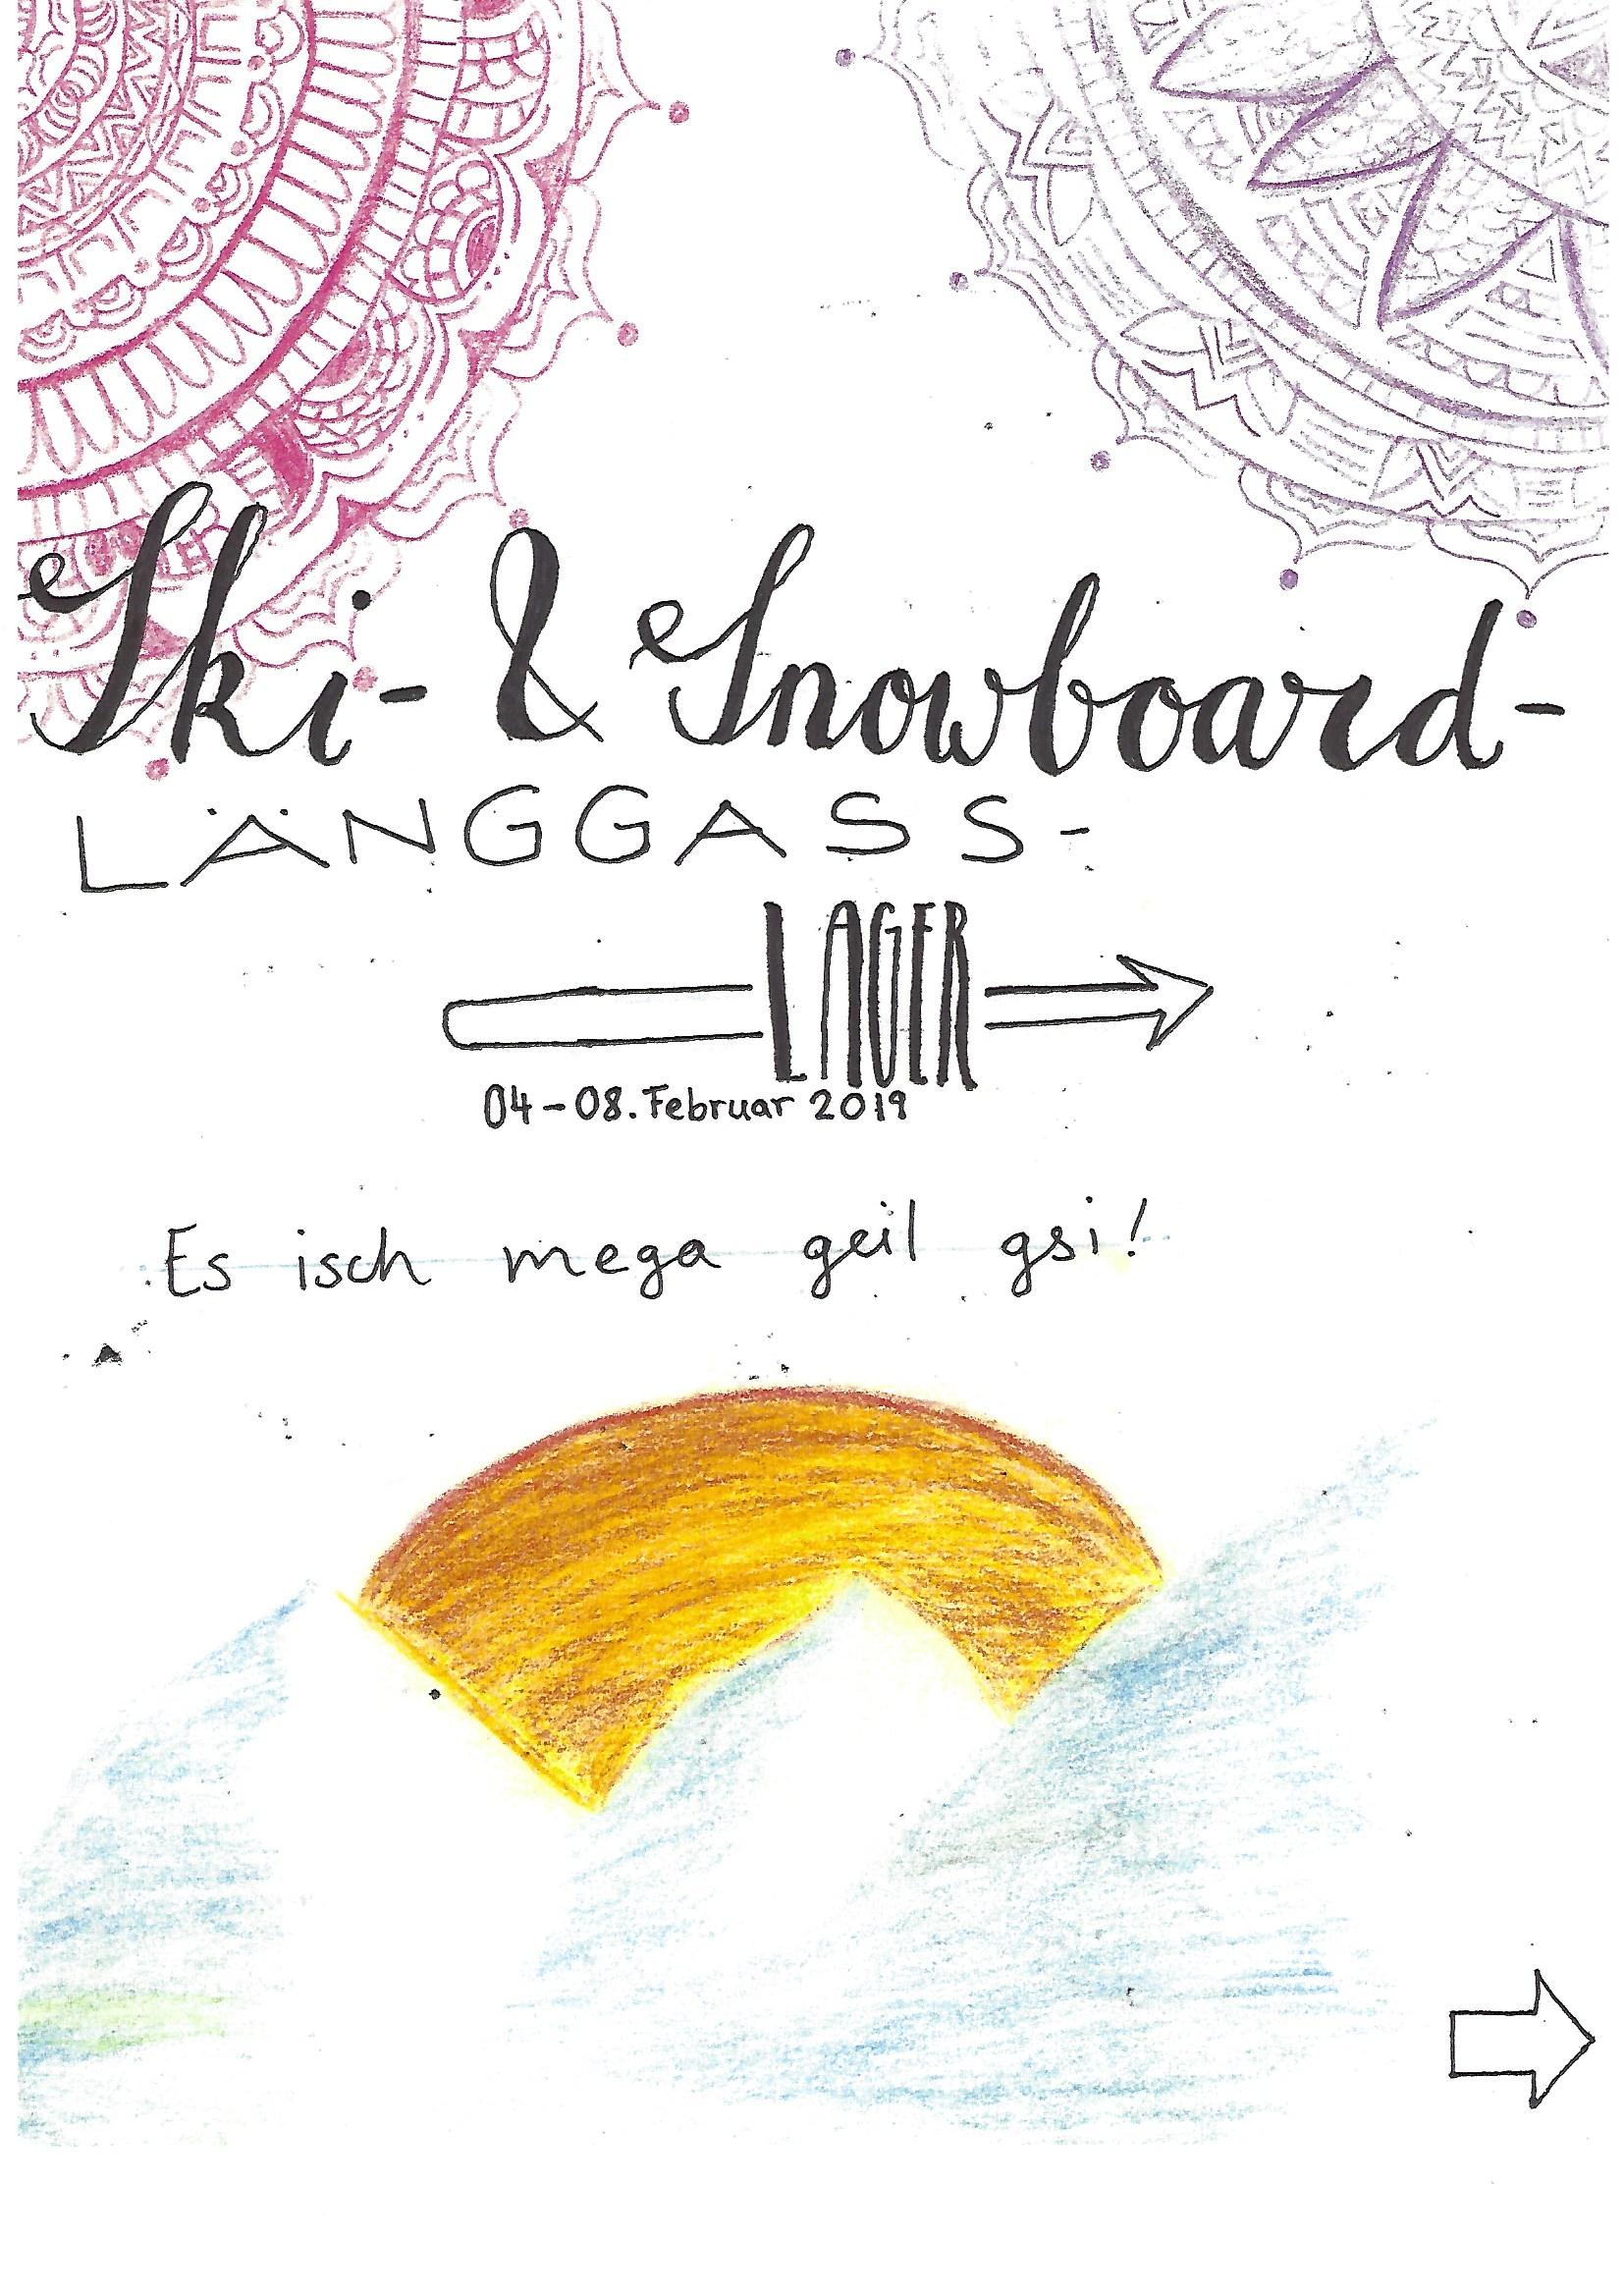 Ski- & Snowboard-
LÄNGGASS-
LAGER
04-08. Februar 2019
Es isch mega geil gsi!